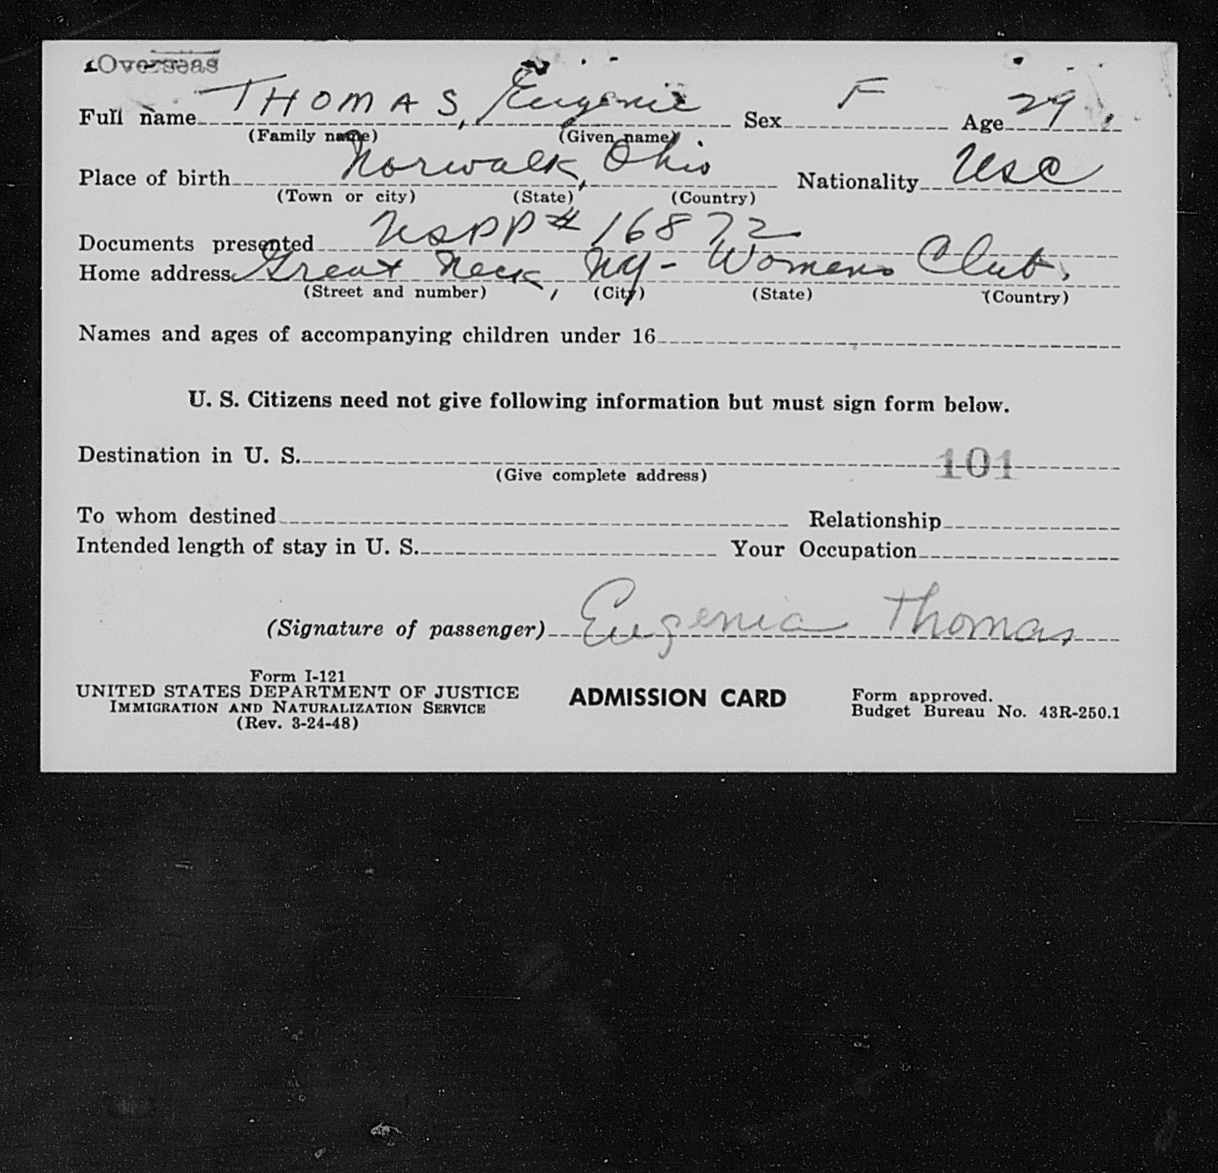 Overseas
Full name THOMAS, Eugenie Sex F Age 29
(Family name) (Given name)
Place of birth Norwalk, Ohio Nationality USC
(Town or city) (State) (Country)
Documents presented USPP# 16872
Home address Great Neck, NY - Womens Club.
(Street and number) (City) (State) (Country)
Names and ages of accompanying children under 16
U. S. Citizens need not give following information but must sign form below.
Destination in U. S. 101
(Give complete address)
To whom destined Relationship
Intended length of stay in U. S. Your Occupation
(Signature of passenger) Eugenia Thomas
Form I-121
UNITED STATES DEPARTMENT OF JUSTICE ADMISSION CARD Form approved.
IMMIGRATION AND NATURALIZATION SERVICE Budget Bureau No. 43R-250.1
(Rev. 3-24-48)